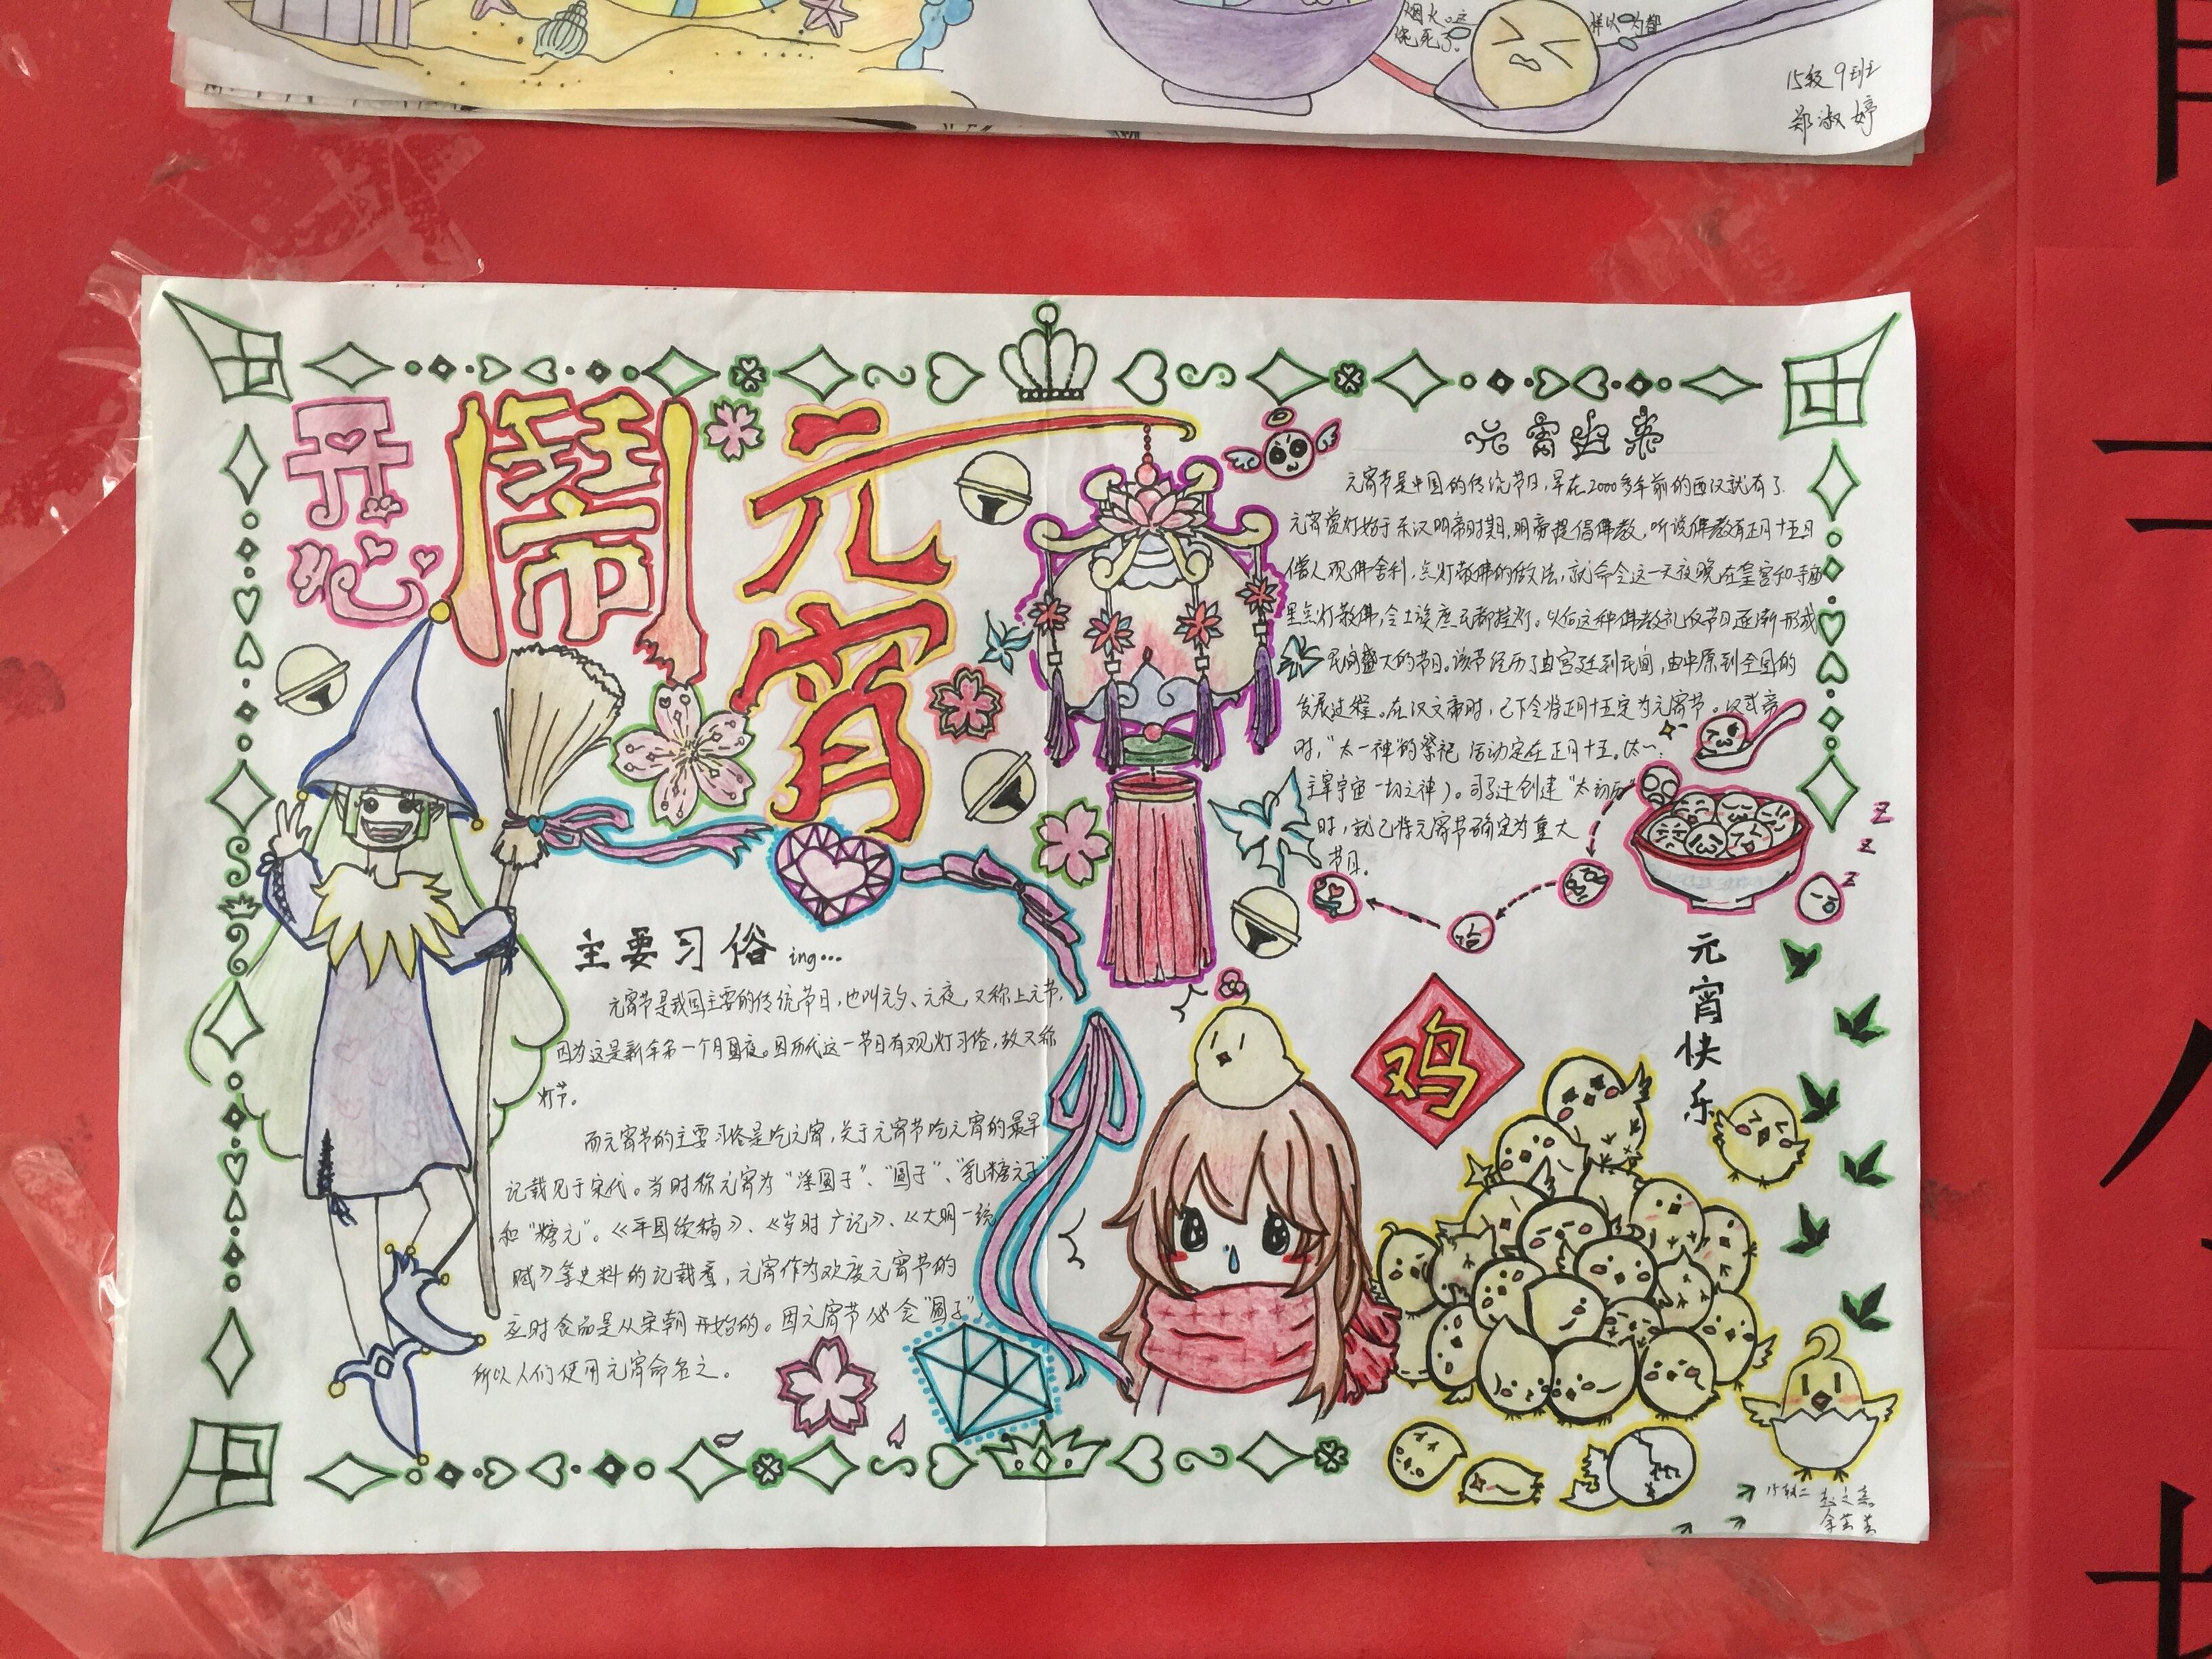 15级9班
郑淑婷
开心
鬧元宵
元宵由来
元宵节是中国的传统节日,早在2000多年前的西汉就有了.
元宵赏灯始于东汉明帝时期,明帝提倡佛教,听说佛教有正月十五日
僧人观佛舍利,点灯敬佛的做法,就命令这一天夜晚在皇宫和寺庙
里点灯敬佛,令士族庶民都挂灯。以后这种佛教礼仪节日逐渐形成
民间盛大的节日。该节经历了由宫廷到民间,由中原到全国的
发展过程。在汉文帝时,已下令将正月十五定为元宵节。汉武帝
时,"太一神"的祭祀 活动定在正月十五。(太一:
主宰宇宙一切之神)。司马迁创建"太初历"
时,就已将元宵节确定为重大
节日。
元宵快乐
主要习俗 ing...
元宵节是我国主要的传统节日,也叫元夕、元夜,又称上元节,
因为这是新年第一个月圆夜。因历代这一节日有观灯习俗,故又称
灯节。
而元宵节的主要习俗是吃元宵,关于元宵节吃元宵的最早
记载见于宋代。当时称元宵为"浮圆子"、"圆子"、"乳糖元子"
和"糖元"。《平园续稿》、《岁时广记》、《大明一统
赋》等史料的记载看,元宵作为欢度元宵节的
应时食品是从宋朝开始的。因元宵节必食"圆子",
所以人们使用元宵命名之。
鸡
z
z
z